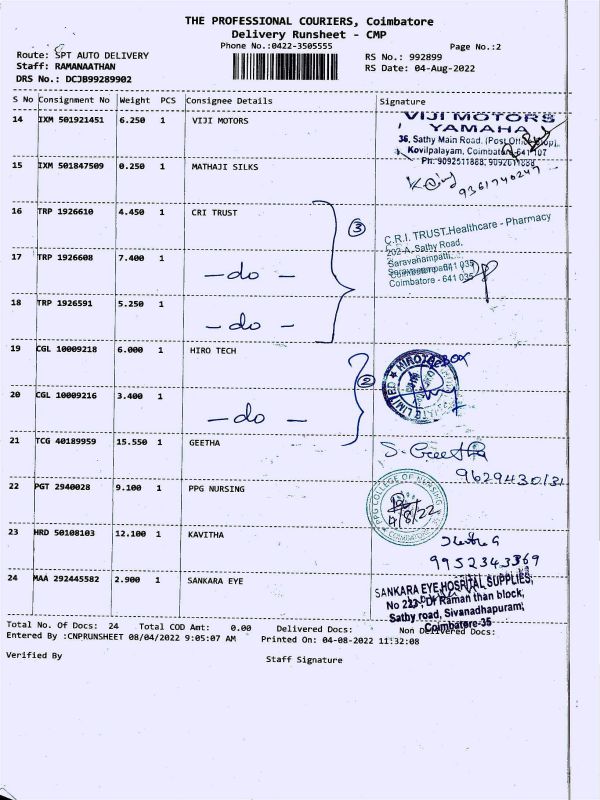 THE PROFESSIONAL COURIERS, Coimbatore
Delivery Runsheet - CMP
Phone No.:0422-3505555 Page No.:2
Route: SPT AUTO DELIVERY
Staff: RAMANAATHAN
DRS No.: DCJB99289902
RS No.: 992899
RS Date: 04-Aug-2022
S No Consignment No Weight PCS Consignee Details Signature
14 IXM 501921451 6.250 1 VIJI MOTORS
VIJI MOTORS
YAMAHA
36, Sathy Main Road, (Post Office Stop),
Kovilpalayam, Coimbatore-641 107
Ph: 9092511888, 9092611888
15 IXM 501847509 0.250 1 MATHAJI SILKS
9361740247
16 TRP 1926610 4.450 1 CRI TRUST
3
C.R.I. TRUST Healthcare - Pharmacy
202-A, Sathy Road,
Saravanampatti,
Coimbatore - 641 035
17 TRP 1926608 7.400 1 - do -
18 TRP 1926591 5.250 1 - do -
19 CGL 10009218 6.000 1 HIRO TECH
2
20 CGL 10009216 3.400 1 - do -
21 TCG 40189959 15.550 1 GEETHA
S. Geetha
22 PGT 2940028 9.100 1 PPG NURSING
PPG COLLEGE OF NURSING
4/8/22
COIMBATORE
23 HRD 50108103 12.100 1 KAVITHA
9952343369
24 MAA 292445582 2.900 1 SANKARA EYE
SANKARA EYE HOSPITAL SUPPLIES,
No 223, Dr Raman than block,
Sathy road, Sivanadhapuram,
Coimbatore-35
Total No. Of Docs: 24 Total COD Amt: 0.00 Delivered Docs: Non Delivered Docs:
Entered By :CNPRUNSHEET 08/04/2022 9:05:07 AM Printed On: 04-08-2022 11:32:08
Verified By Staff Signature